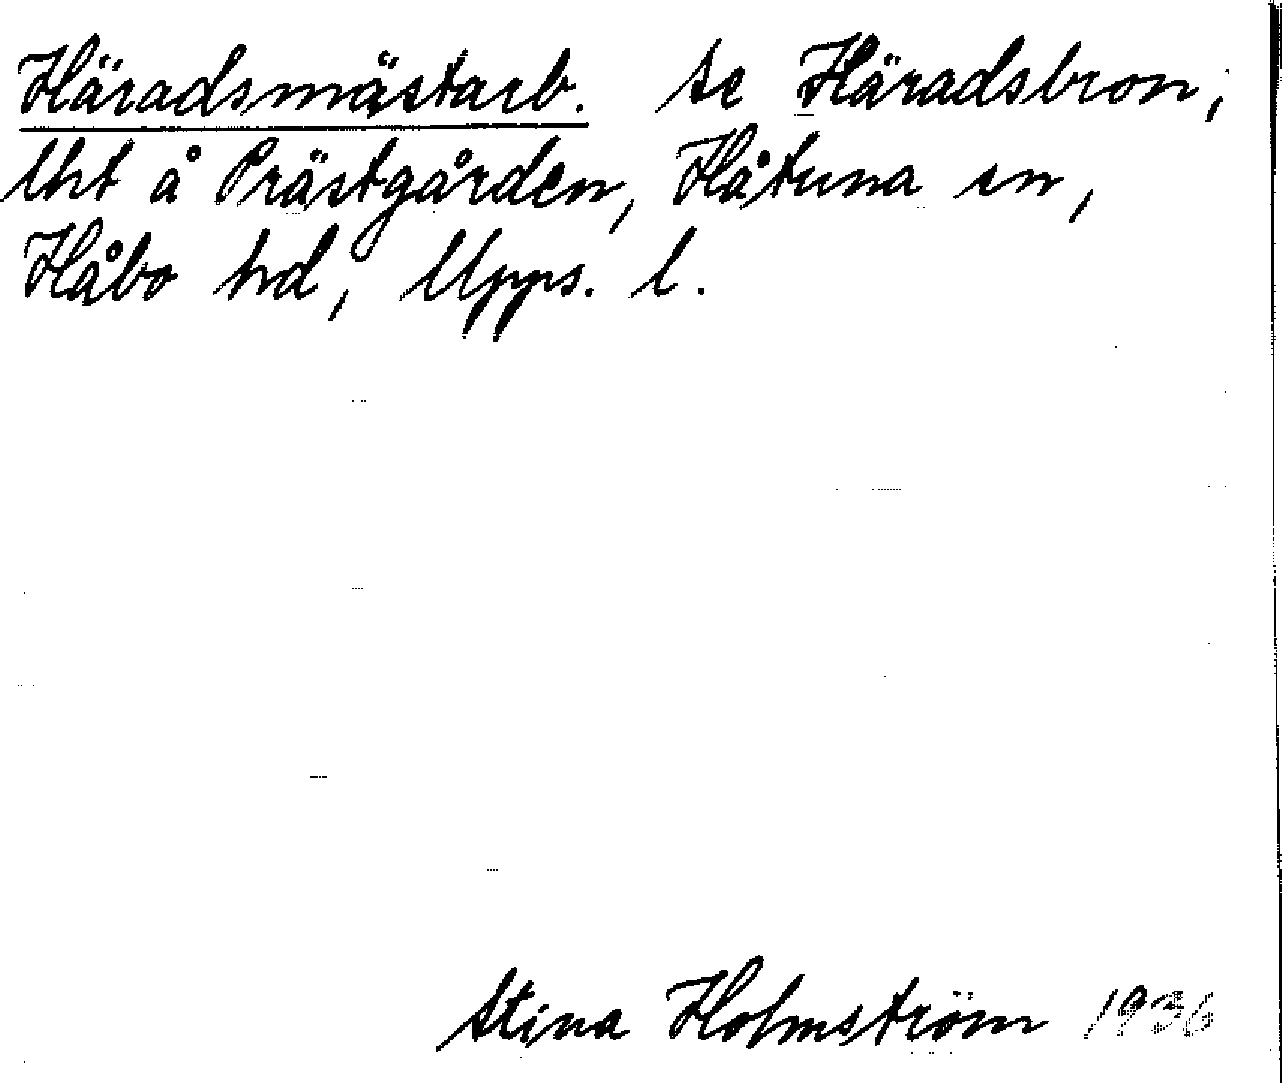 Häradsmästarb. se Häradsbron;
Uht å Prästgården, Håtuna sn,
Håbo hd, Upps. l.
Stina Holmström 1936